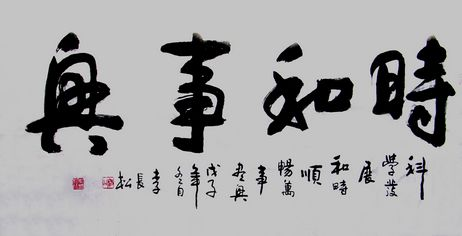 時和事興
科
學發
展
和時
順
暢萬
事
盡興
戊子
年
冬月
李
長
松